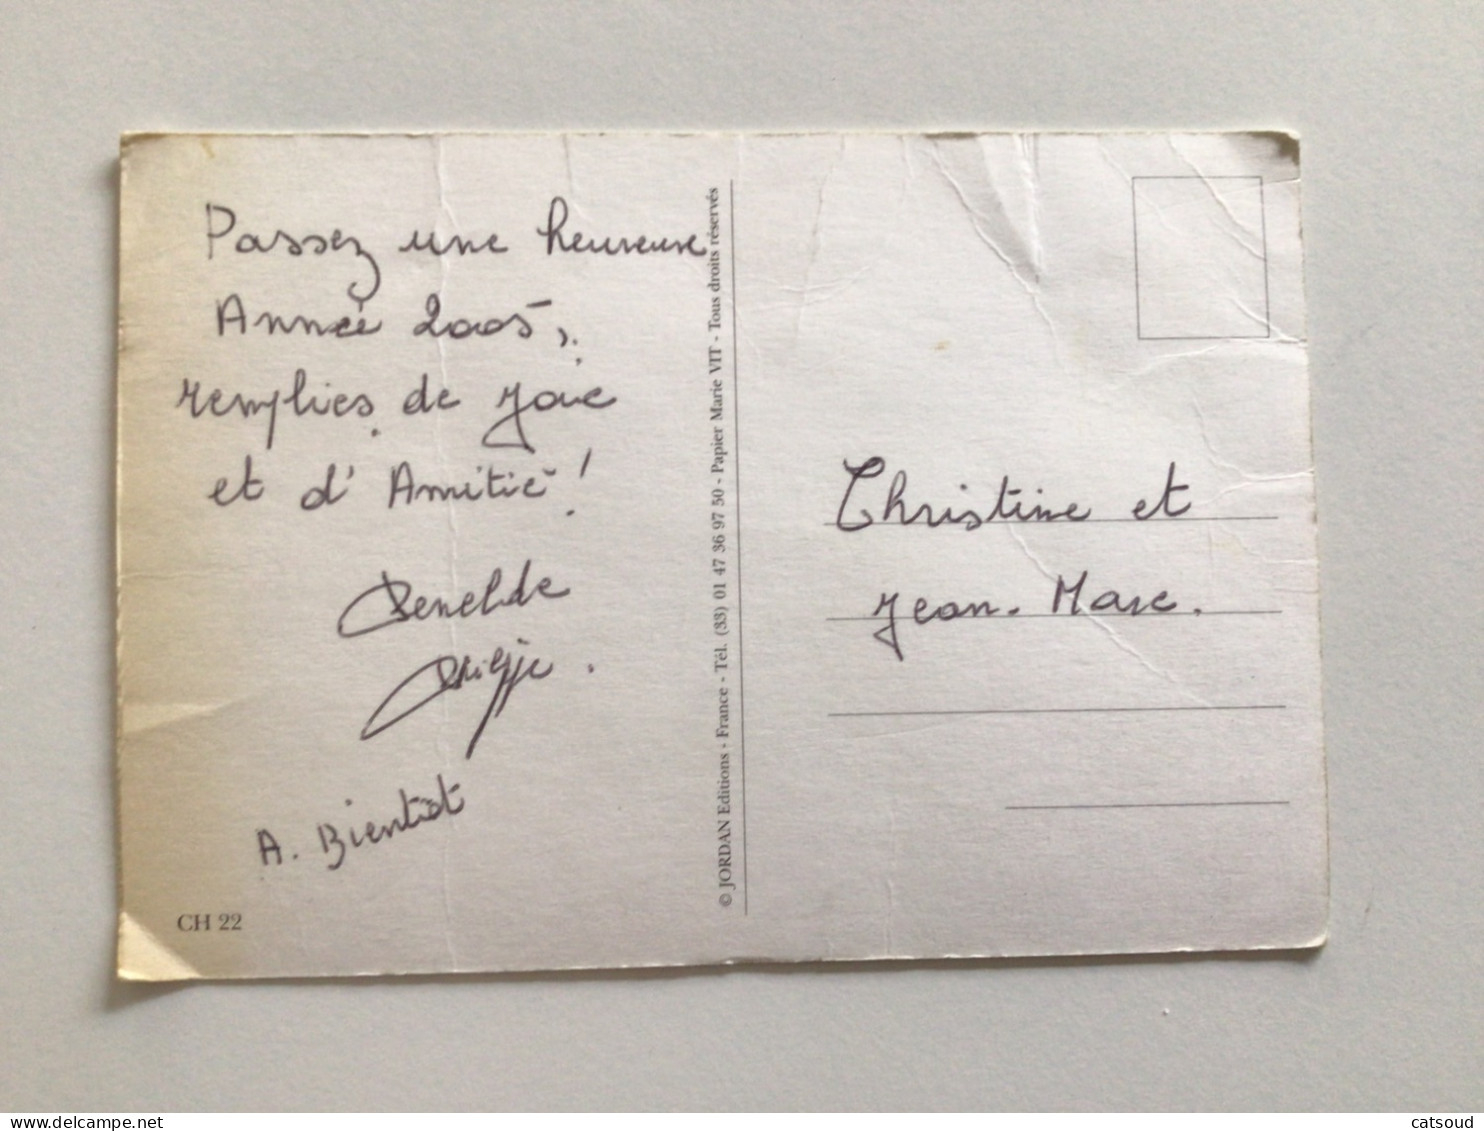 Passez une heureuse
Année 2005,
remplies de Joie
et d'Amitié !
A. Bientôt
CH 22
© JORDAN Editions - France - Tél. (33) 01 47 36 97 50 - Papier Marie VIT - Tous droits réservés
Christine et
Jean-Marc.
www.delcampe.net
catsoud